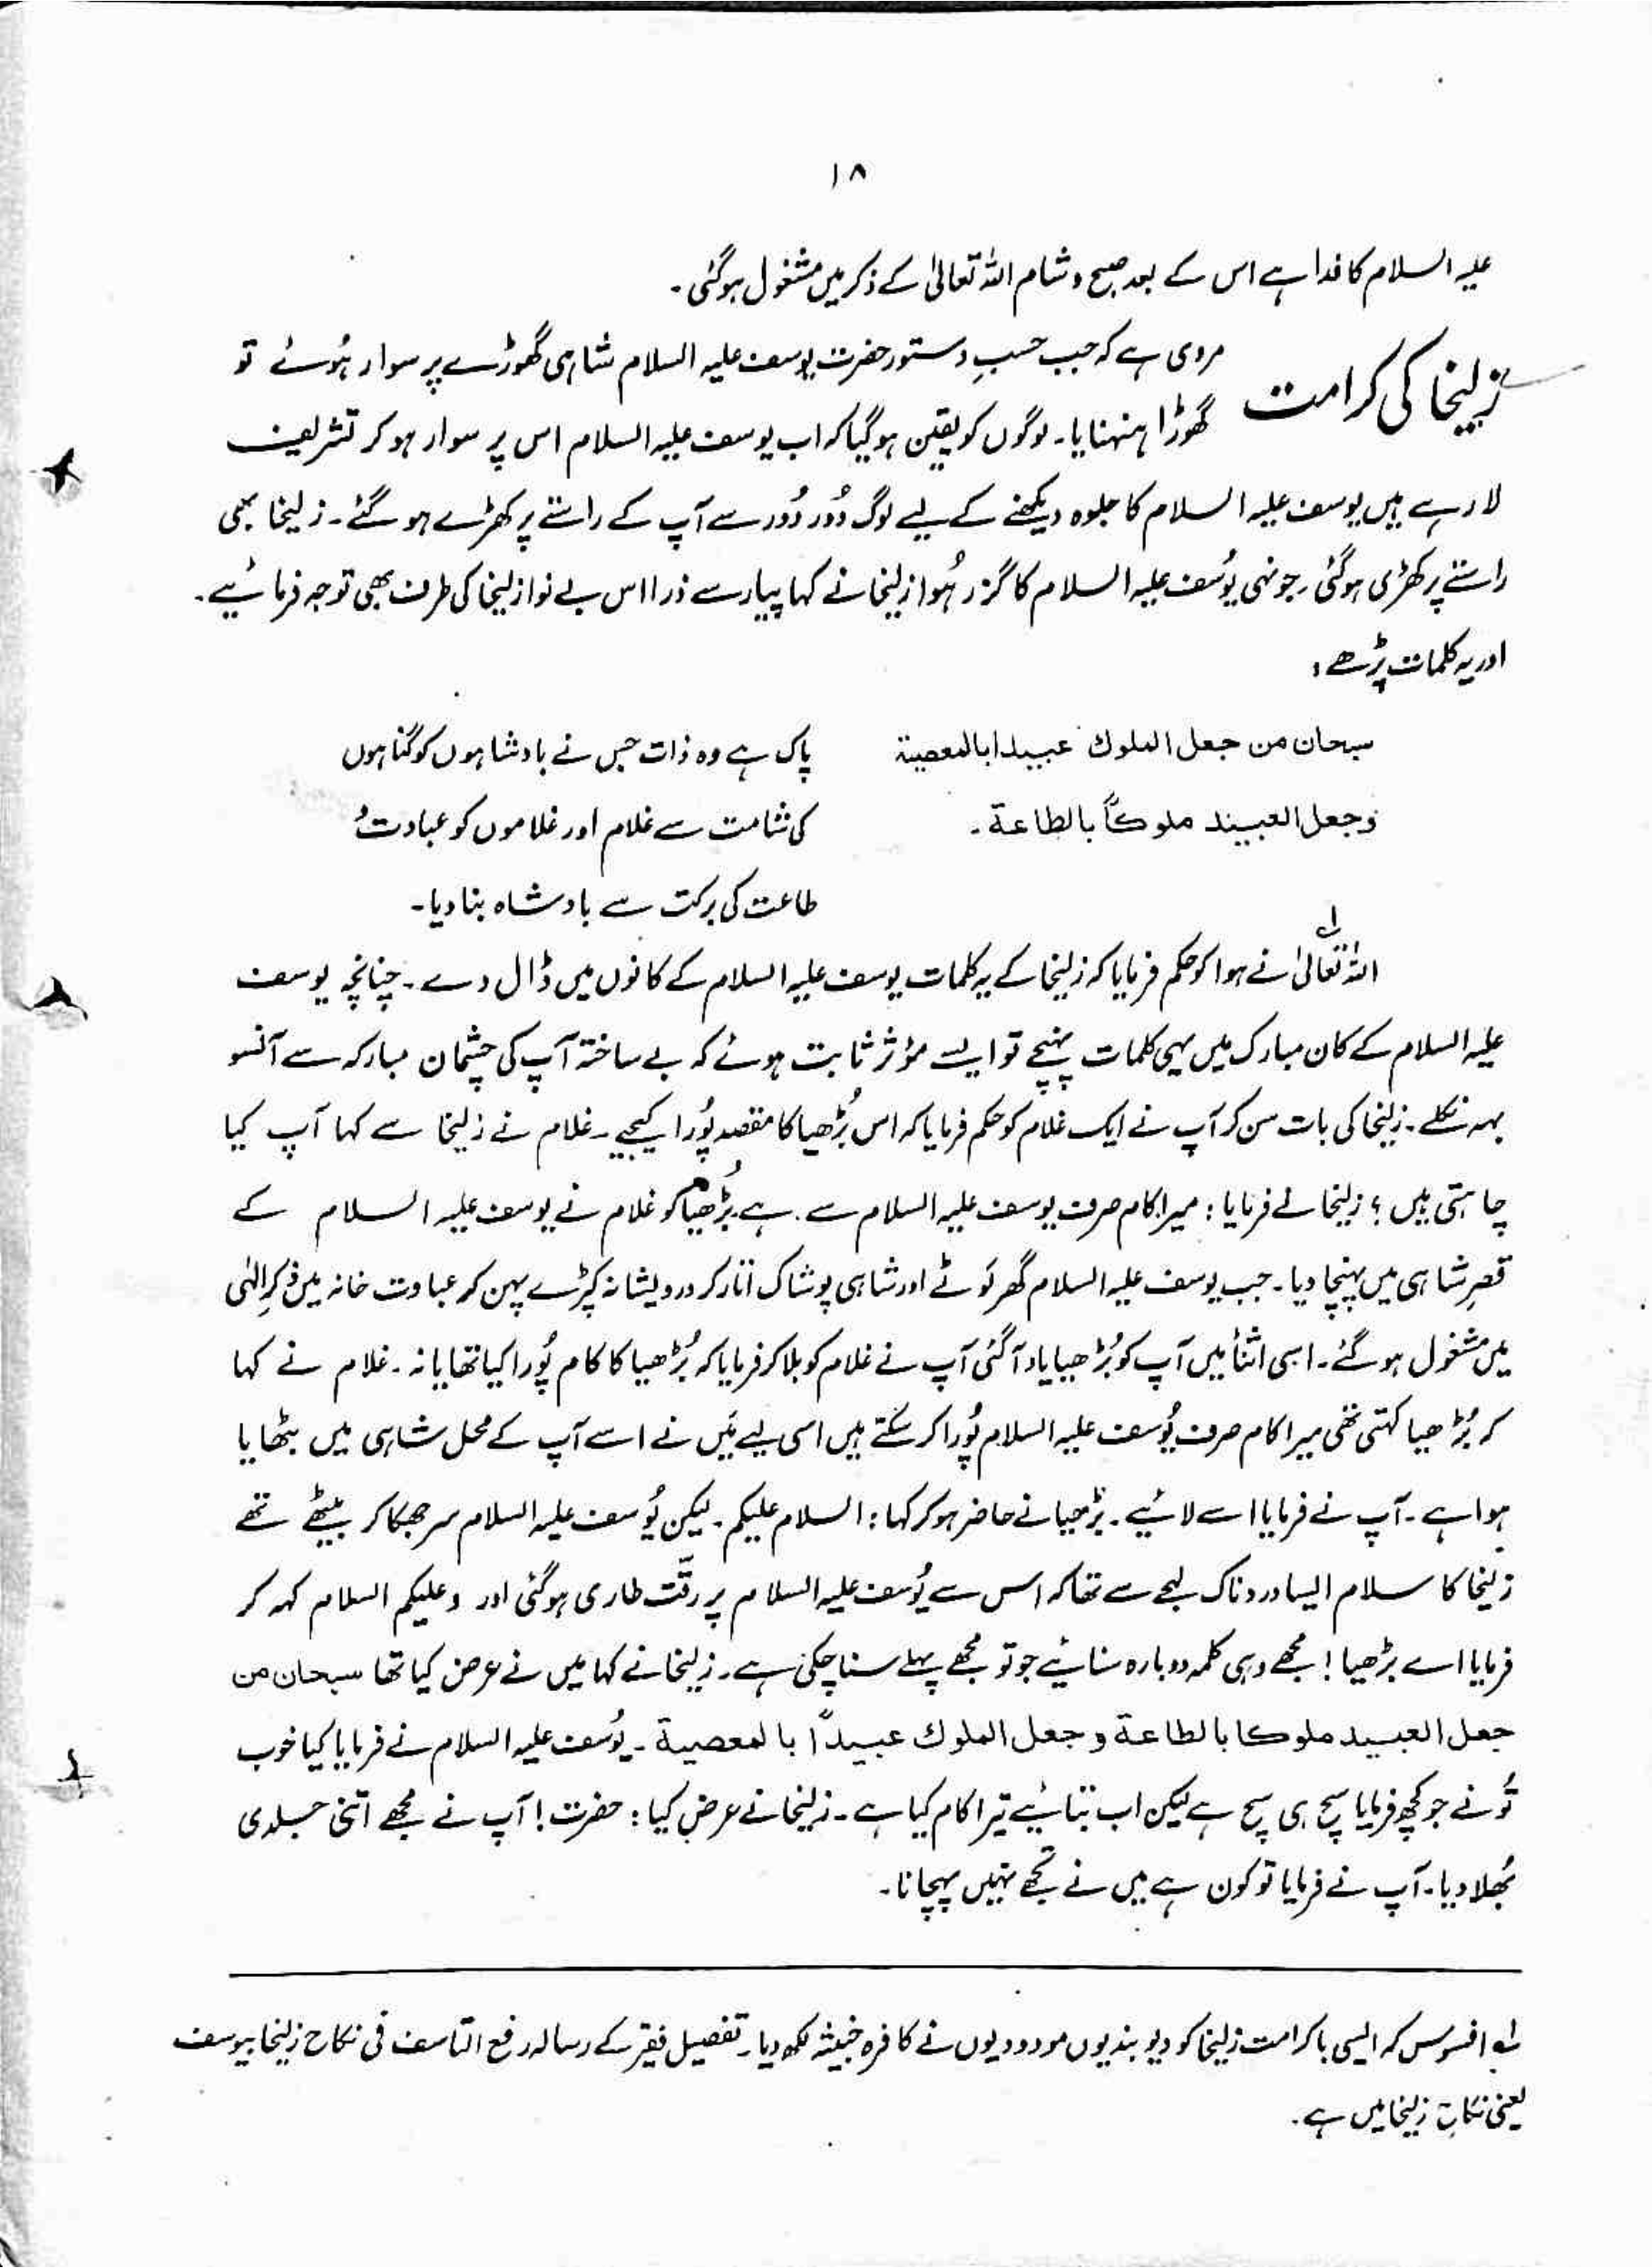 ۱۸
علیہ السلام کا خدا ہے اس کے بعد صبح و شام اللہ تعالیٰ کے ذکر میں مشغول ہوگئی۔
زلیخا کی کرامت
مروی ہے کہ جب حسبِ دستور حضرت یوسف علیہ السلام شاہی گھوڑے پر سوار ہُوئے تو
گھوڑا ہنہنایا۔ لوگوں کو یقین ہوگیا کہ اب یوسف علیہ السلام اس پر سوار ہو کر تشریف
لا رہے ہیں یوسف علیہ السلام کا جلوہ دیکھنے کے لیے لوگ دُور دُور سے آپ کے راستے پر کھڑے ہو گئے۔ زلیخا بھی
راستے پر کھڑی ہوگئی۔ جونہی یُوسف علیہ السلام کا گزر ہُوا زلیخا نے کہا پیارے ذرا اس بے نوا زلیخا کی طرف بھی توجہ فرمائیے۔
اور یہ کلمات پڑھے:
سبحان من جعل الملوك عبيدا بالمعصية
وجعل العبيد ملوكاً بالطاعة۔
پاک ہے وہ ذات جس نے بادشاہوں کو گناہوں
کی شامت سے غلام اور غلاموں کو عبادت و
طاعت کی برکت سے بادشاہ بنا دیا۔
اللہ تعالیٰ نے ہوا کو حکم فرمایا کہ زلیخا کے یہ کلمات یوسف علیہ السلام کے کانوں میں ڈال دے۔ چنانچہ یوسف
علیہ السلام کے کان مبارک میں یہی کلمات پہنچے تو ایسے مؤثر ثابت ہوئے کہ بے ساختہ آپ کی چشمان مبارکہ سے آنسو
بہہ نکلے۔ زلیخا کی بات سن کر آپ نے ایک غلام کو حکم فرمایا کہ اس بُڑھیا کا مقصد پُورا کیجیے۔ غلام نے زلیخا سے کہا آپ کیا
چاہتی ہیں؟ زلیخا نے فرمایا: میرا کام صرف یوسف علیہ السلام سے ہے۔ بُڑھیا کو غلام نے یوسف علیہ السلام کے
قصرِ شاہی میں پہنچا دیا۔ جب یوسف علیہ السلام گھر لوٹے اور شاہی پوشاک اتار کر درویشانہ کپڑے پہن کر عبادت خانہ میں ذکرِ الٰہی
میں مشغول ہو گئے۔ اسی اثنأ میں آپ کو بُڑھیا یاد آگئی آپ نے غلام کو بلا کر فرمایا کہ بُڑھیا کا کام پُورا کیا تھا یا نہ۔ غلام نے کہا
کر بُڑھیا کہتی تھی میرا کام صرف یُوسف علیہ السلام پُورا کر سکتے ہیں اسی لیے مَیں نے اسے آپ کے محل شاہی میں بٹھایا
ہوا ہے۔ آپ نے فرمایا اسے لائیے۔ بڑھیا نے حاضر ہو کر کہا: السلام علیکم۔ لیکن یُوسف علیہ السلام سر جھکا کر بیٹھے تھے
زلیخا کا سلام ایسا دردناک لہجے سے تھا کہ اس سے یُوسف علیہ السلام پر رقّت طاری ہوگئی اور وعلیکم السلام کہہ کر
فرمایا اے بڑھیا! مجھے وہی کلمہ دوبارہ سنائیے جو تو مجھے پہلے سنا چکی ہے۔ زلیخا نے کہا میں نے عرض کیا تھا سبحان من
جعل العبيد ملوكا بالطاعة وجعل الملوك عبيداً بالمعصية۔ یُوسف علیہ السلام نے فرمایا کیا خوب
تُو نے جو کچھ فرمایا سچ ہی سچ ہے لیکن اب بتائیے تیرا کام کیا ہے۔ زلیخا نے عرض کیا: حضرت! آپ نے مجھے اتنی جلدی
بُھلا دیا۔ آپ نے فرمایا تو کون ہے میں نے تجھے نہیں پہچانا۔
لے افسوس کہ ایسی باکرامت زلیخا کو دیوبندیوں مودودیوں نے کافرہ خبیثہ لکھ دیا۔ تفصیل فقیر کے رسالہ رفع التاسف فی نکاح زلیخا بیوسف
یعنی نکاحِ زلیخا میں ہے۔